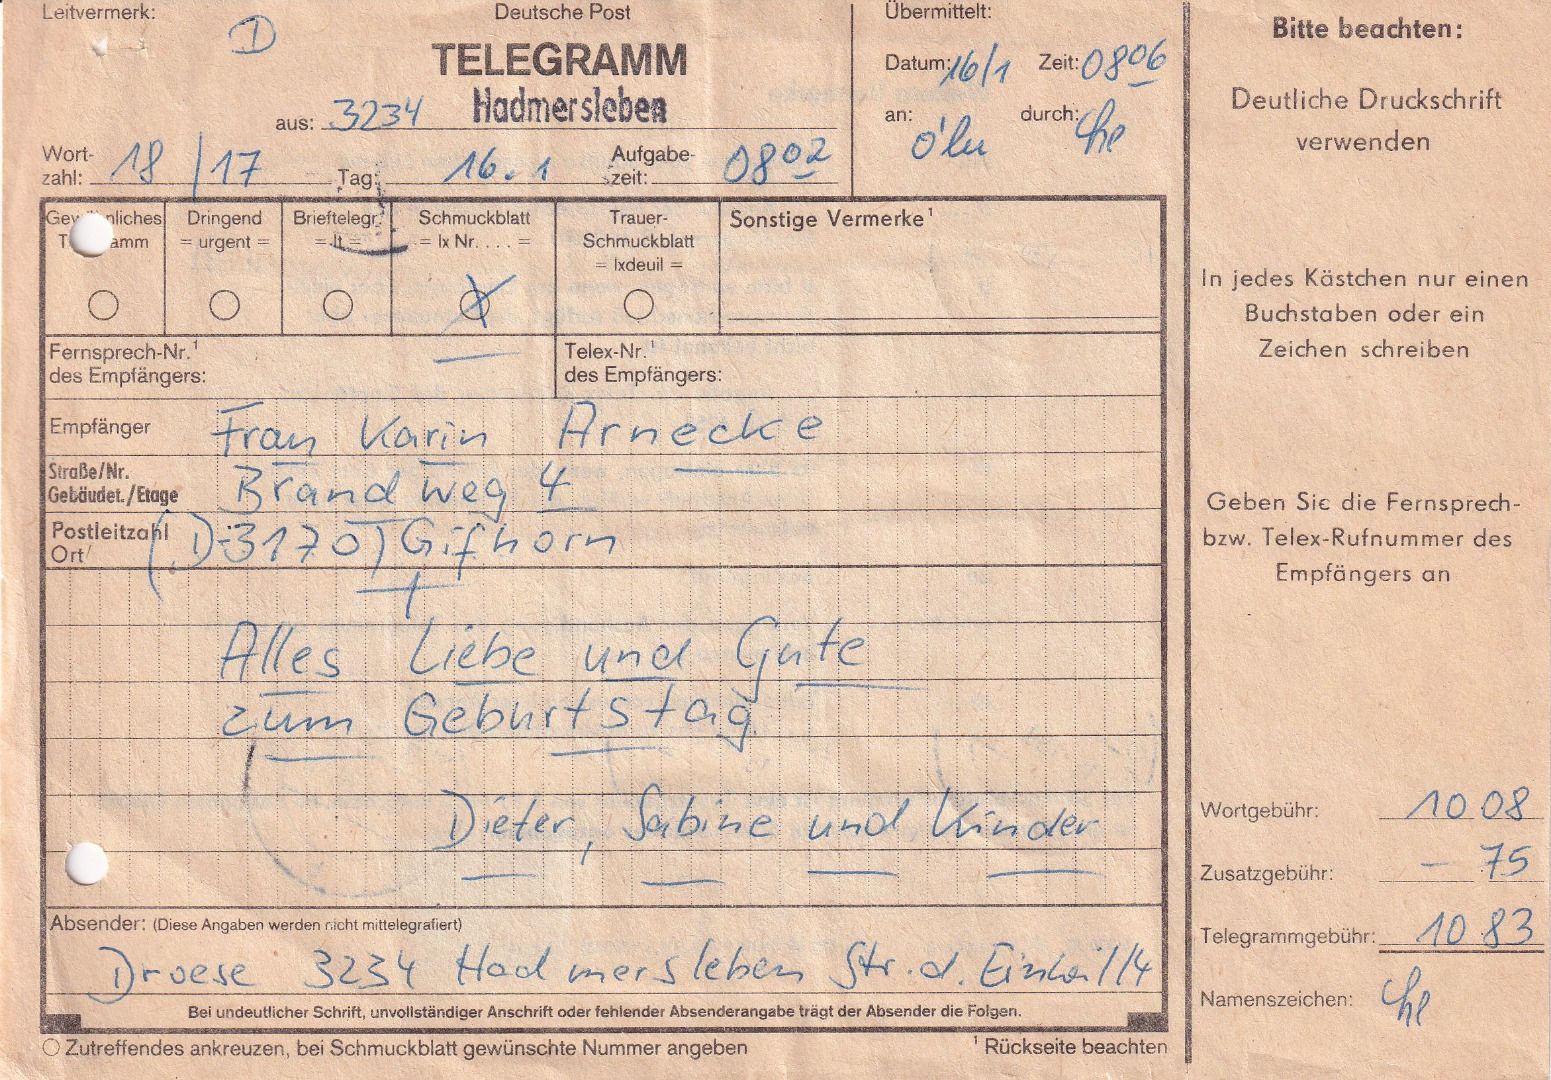 Leitvermerk:
D
Deutsche Post
TELEGRAMM
aus: 3234 Hadmersleben
Wort-
zahl: 18/17 Tag: 16.1 Aufgabe-
zeit: 0802
Übermittelt:
Datum: 16/1 Zeit: 0806
an: durch:
Gewöhnliches
Telegramm
Dringend
= urgent =
Brieftelegr.
= lt =
Schmuckblatt
= lx Nr. . . . =
Trauer-
Schmuckblatt
= lxdeuil =
Sonstige Vermerke¹
Fernsprech-Nr.¹
des Empfängers:
Telex-Nr.¹
des Empfängers:
Empfänger Frau Karin Arnecke
Straße/Nr.
Gebäudet./Etage Brandweg 4
Postleitzahl
Ort (D-3170) Gifhorn
Alles Liebe und Gute
zum Geburtstag
Dieter, Sabine und Kinder
Absender: (Diese Angaben werden nicht mittelegrafiert)
Droese 3234 Hadmersleben Str. d. Einheit 14
Bei undeutlicher Schrift, unvollständiger Anschrift oder fehlender Absenderangabe trägt der Absender die Folgen.
Zutreffendes ankreuzen, bei Schmuckblatt gewünschte Nummer angeben
¹ Rückseite beachten
Bitte beachten:
Deutliche Druckschrift
verwenden
In jedes Kästchen nur einen
Buchstaben oder ein
Zeichen schreiben
Geben Sie die Fernsprech-
bzw. Telex-Rufnummer des
Empfängers an
Wortgebühr: 10 08
Zusatzgebühr: — 75
Telegrammgebühr: 10 83
Namenszeichen: